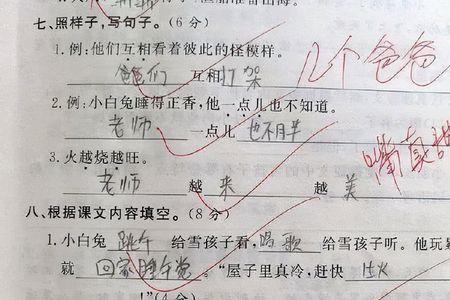 七、照样子，写句子。(6分)
1. 例：他们互相看着彼此的怪模样。
爸爸们 互相打架
几个爸爸
2. 例：小白兔睡得正香，他一点儿也不知道。
老师 一点儿 也不月半
3. 火越烧越旺。
嘴真甜
老师 越 来 越 美
八、根据课文内容填空。(8分)
1. 小白兔 跳午 给雪孩子看，唱歌 给雪孩子听。他玩
就 回家睡午觉 。“屋子里真冷，赶快
!”(4分)